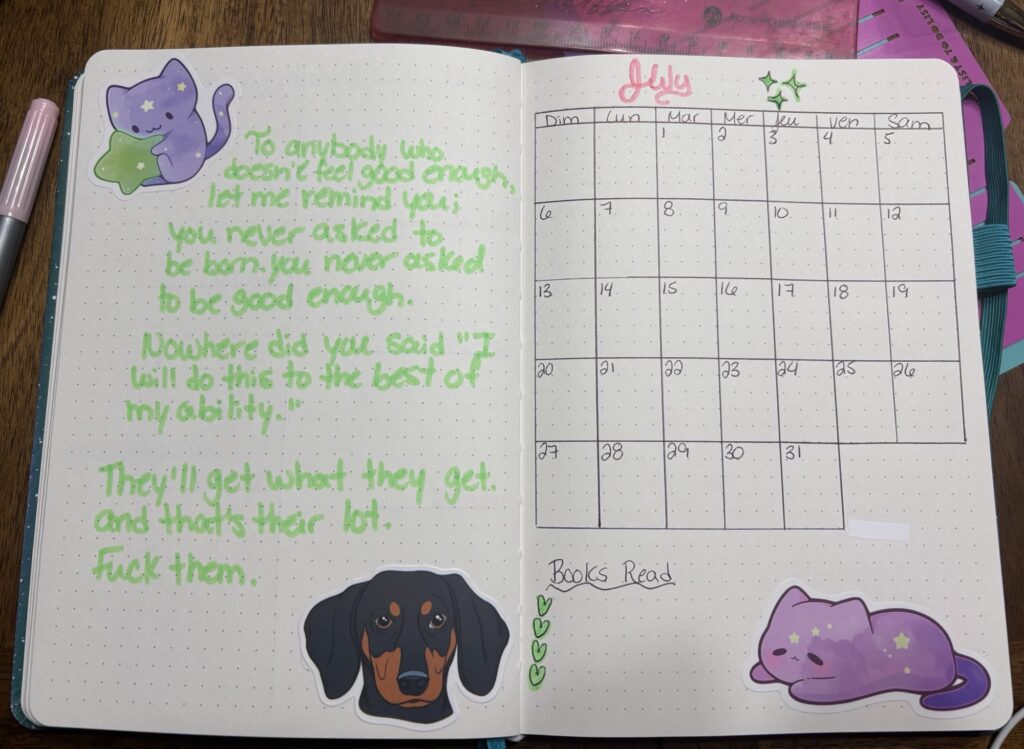 To anybody who
doesn't feel good enough,
let me remind you;
you never asked to
be born. you never asked
to be good enough.
Nowhere did you said "I
will do this to the best of
my ability."
They'll get what they get.
and that's their lot.
Fuck them.
July
Dim Lun Mar Mer Jeu Ven Sam
1 2 3 4 5
6 7 8 9 10 11 12
13 14 15 16 17 18 19
20 21 22 23 24 25 26
27 28 29 30 31
Books Read
LIST & TO DO LIST